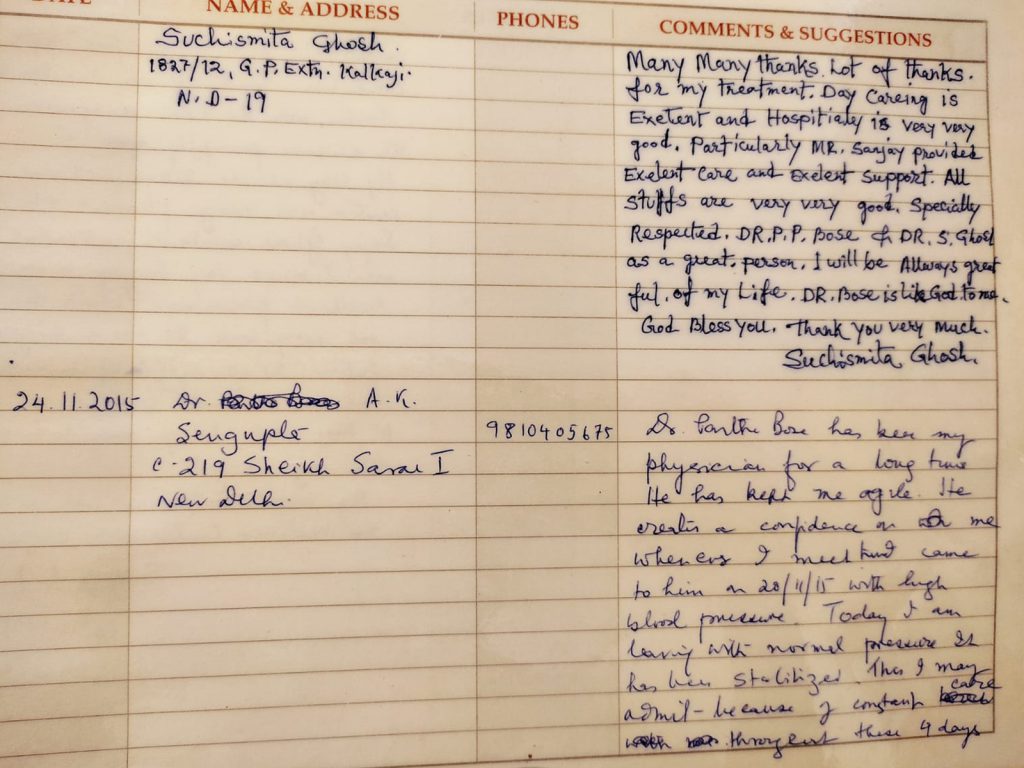 DATE
NAME & ADDRESS
PHONES
COMMENTS & SUGGESTIONS
Suchismita Ghosh.
1827/12, G.P. Extn. Kalkaji.
N.D-19
Many Many thanks. Lot of thanks.
for my treatment. Day Careing is
Exetent and Hospitialy is very very
good. Particularly MR. Sanjay provided
Exelent Care and exelent Support. All
Stuffs are very very good. Specially
Respected. DR.P.P. Bose & DR. S. Ghosh
as a great. person. I will be Allways great
ful. of my Life. DR. Bose is like God to me.
God Bless you. Thank you very much.
Suchismita Ghosh.
24.11.2015
Dr. A.K.
Sengupta
C-219 Sheikh Sarai I
New Delhi.
9810405675
Dr. Partha Bose has been my
physician for a long time
He has kept me agile. He
creates a confidence in me
whenever I meet him. I came
to him on 20/11/15 with high
blood pressure. Today I am
leaving with normal pressure It
has been stabilized. This I may
admit - because of constant care
throughout these 4 days